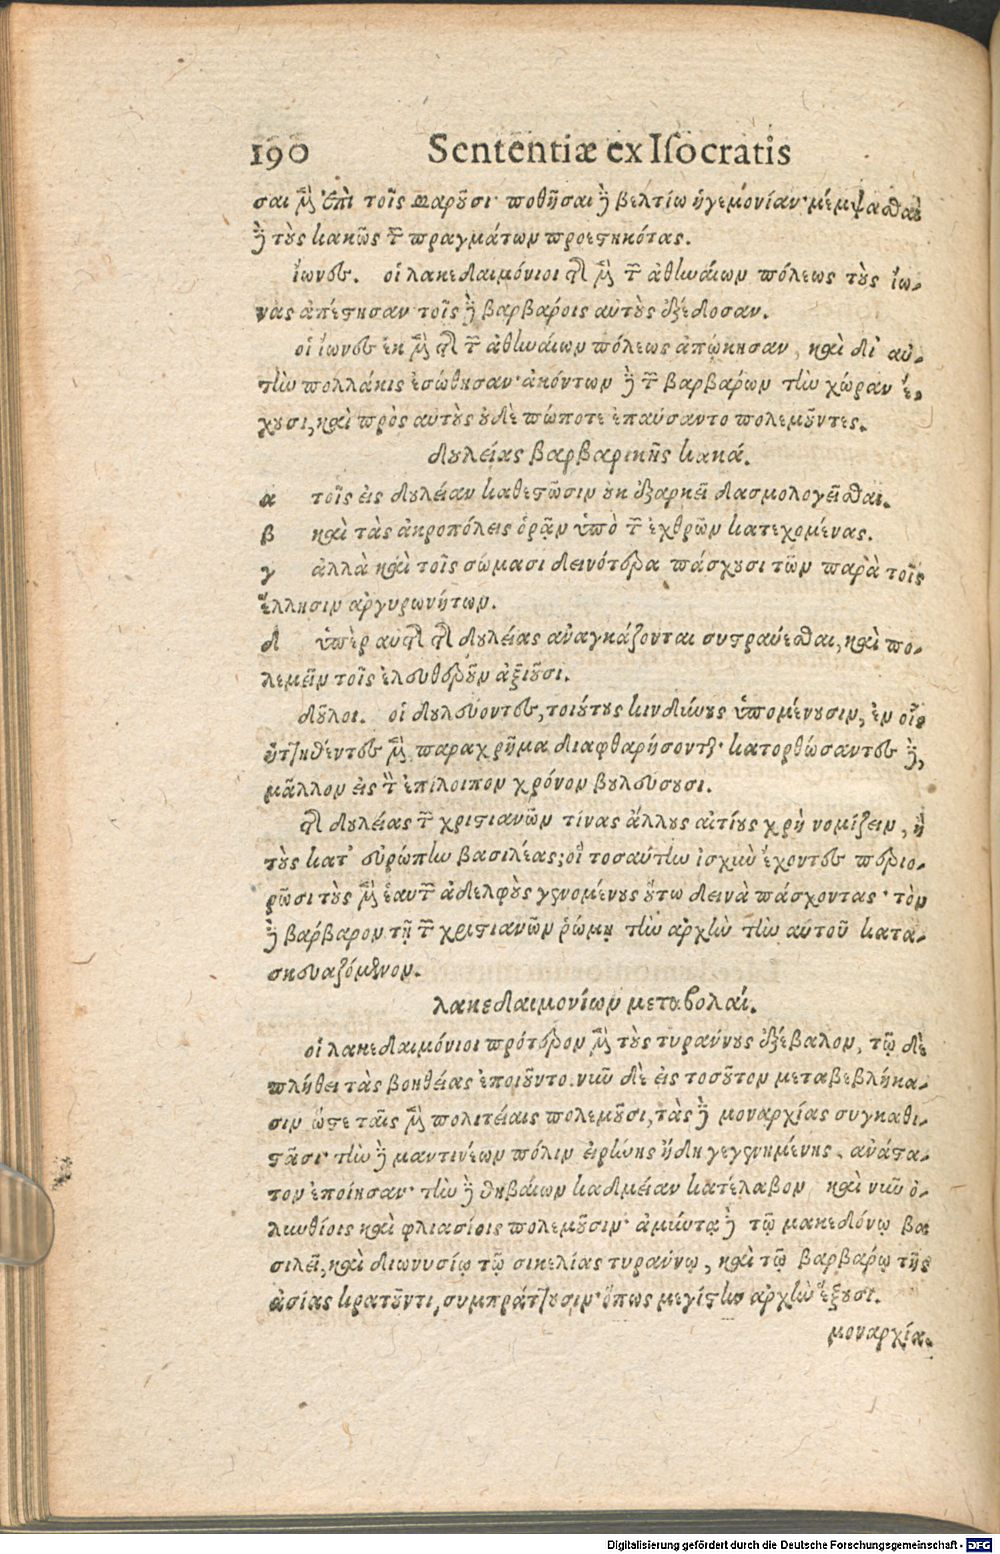 190 Sententiæ ex Iſocratis
σαι μὲν ἐπὶ τοῖς παροῦσι· ποθῆσαι δὲ βελτίω ἡγεμονίαν· μέμψασθαι
δὲ τοὺς κακῶς τῶν πραγμάτων προεστηκότας.
ἴωνες. οἱ λακεδαιμόνιοι τῆς μὲν τῶν ἀθηναίων πόλεως τοὺς ἴω-
νας ἀπέστησαν τοῖς δὲ βαρβάροις αὐτοὺς ἐξέδοσαν.
οἱ ἴωνες ἐκ μὲν τῆς τῶν ἀθηναίων πόλεως ἀπῴκησαν, καὶ δι' αὐ-
τὴν πολλάκις ἐσώθησαν· ἀκόντων δὲ τῶν βαρβάρων τὴν χώραν ἔ-
χουσι, καὶ πρὸς αὐτοὺς οὐδὲ πώποτε ἐπαύσαντο πολεμοῦντες.
δουλείας βαρβαρικῆς κακά.
α τοῖς εἰς δουλείαν καθεστῶσιν οὐκ ἐξαρκεῖ δασμολογεῖσθαι.
β καὶ τὰς ἀκροπόλεις ὁρᾷν ὑπὸ τῶν ἐχθρῶν κατεχομένας.
γ ἀλλὰ καὶ τοῖς σώμασι δεινότερα πάσχουσι τῶν παρὰ τοῖς
ἕλλησιν ἀργυρωνήτων.
δ ὑπὲρ αὐτῆς τῆς δουλείας ἀναγκάζονται συστρατεύεσθαι, καὶ πο-
λεμεῖν τοῖς ἐλευθεροῦν ἀξιοῦσι.
δοῦλοι. οἱ δουλεύοντες, τοιούτους κινδύνους ὑπομένουσιν, ἐν οἷς
ἡττηθέντες μὲν παραχρῆμα διαφθαρήσονται· κατορθώσαντες δὲ,
μᾶλλον εἰς τὸν ἐπίλοιπον χρόνον δουλεύσουσι.
τῆς δουλείας τῶν χριστιανῶν τίνας ἄλλους αἰτίους χρὴ νομίζειν, ἢ
τοὺς κατ' εὐρώπην βασιλέας; οἳ τοσαύτην ἰσχὺν ἔχοντες περιο-
ρῶσι τοὺς μὲν ἑαυτῶν ἀδελφοὺς γενομένους οὕτω δεινὰ πάσχοντας· τὸν
δὲ βάρβαρον τῇ τῶν χριστιανῶν ῥώμῃ τὴν ἀρχὴν τὴν αὐτοῦ κατα-
σκευαζόμενον.
λακεδαιμονίων μεταβολαί.
οἱ λακεδαιμόνιοι πρότερον μὲν τοὺς τυράννους ἐξέβαλον, τῷ δὲ
πλήθει τὰς βοηθείας ἐποιοῦντο· νῦν δὲ εἰς τοσοῦτον μεταβεβλήκα-
σιν ὥστε ταῖς μὲν πολιτείαις πολεμοῦσι, τὰς δὲ μοναρχίας συγκαθι-
στᾶσι· τὴν δὲ μαντινέων πόλιν εἰρήνης ἤδη γεγενημένης, ἀνάστα-
τον ἐποίησαν· τὴν δὲ θηβαίων καδμείαν κατέλαβον, καὶ νῦν ὀ-
λυνθίοις καὶ φλιασίοις πολεμοῦσιν· ἀμύντᾳ δὲ τῷ μακεδόνῳ βα
σιλεῖ, καὶ διονυσίῳ τῷ σικελίας τυράννῳ, καὶ τῷ βαρβάρῳ τῆς
ἀσίας κρατοῦντι, συμπράττουσιν· ὅπως μεγίστην ἀρχὴν ἕξουσι.
μοναρχία.
Digitalisierung gefördert durch die Deutsche Forschungsgemeinschaft - DFG